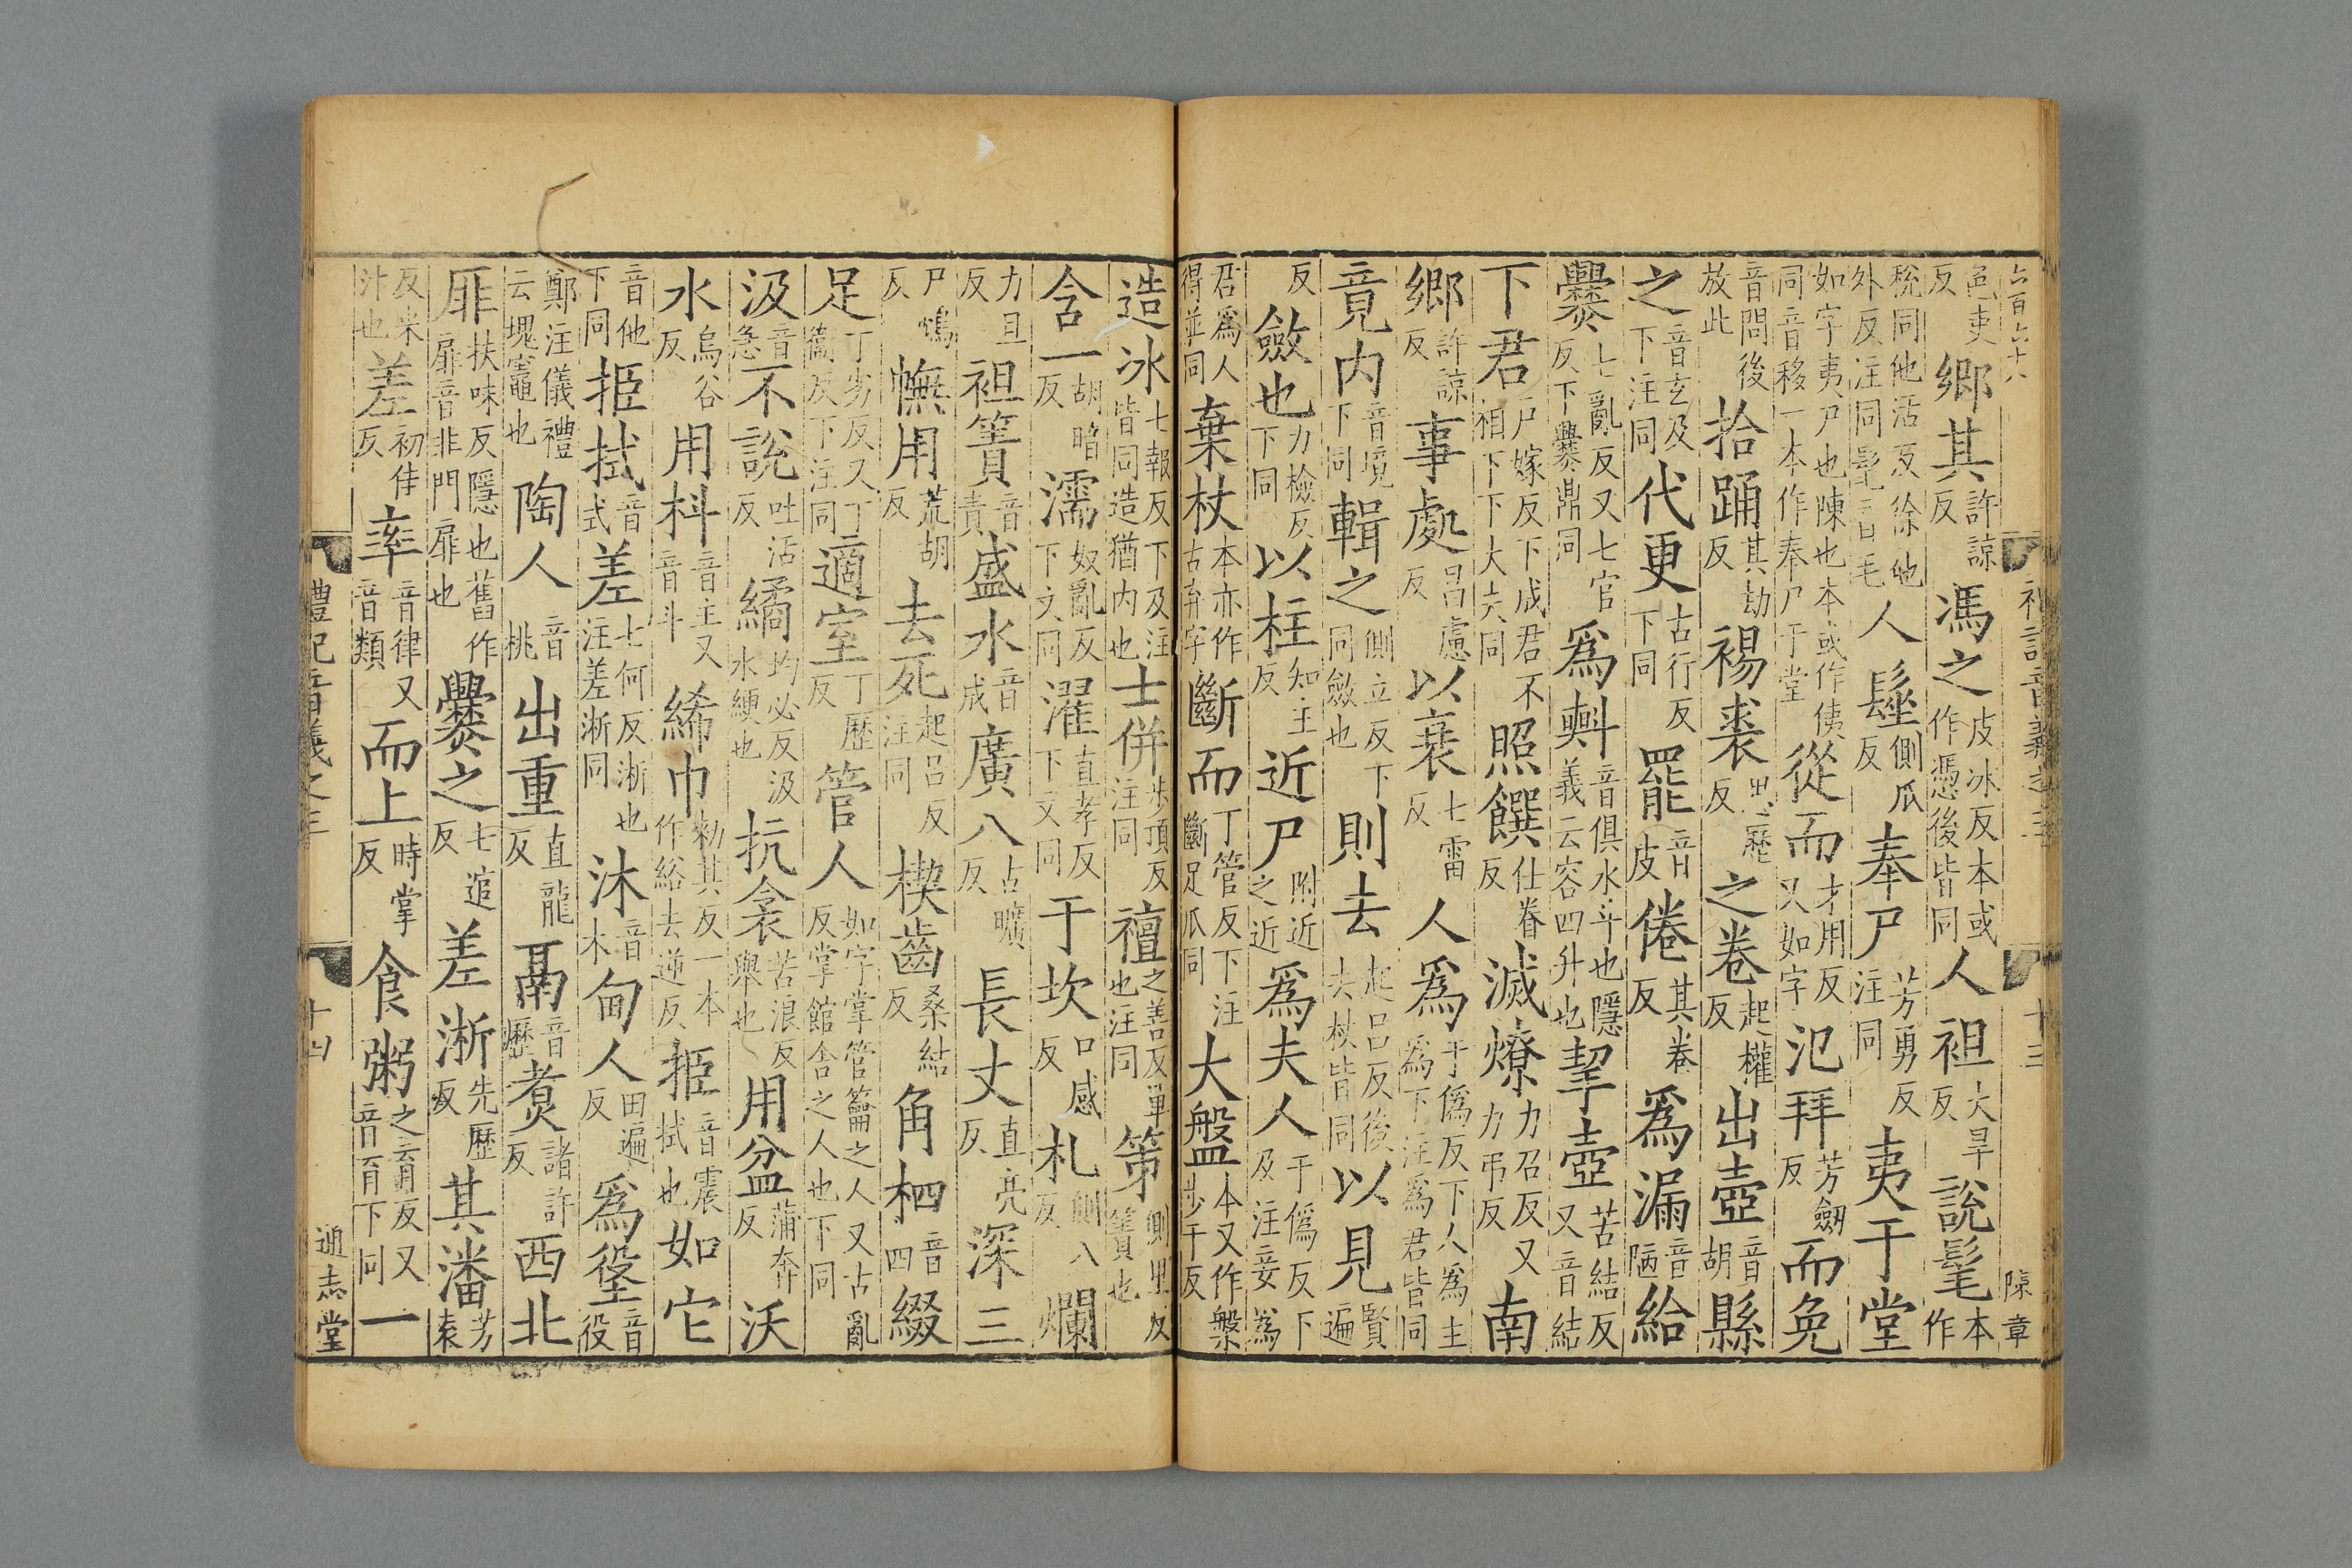 六百六十八 礼記音義之三 十三 陳章
色吏反鄉其許諒反馮之皮冰反本或作憑後皆同人袒大旱反說髦本作
稅同他活反徐他外反注同髦音毛人髽側瓜反奉尸芳勇反注同夷于堂
如字夷尸也陳也本或作侇同音移一本作奉尸于堂從而才用反又如字氾拜芳劒反而免
音問後放此拾踊其劫反裼裘思歷反之卷起權反出壺音胡縣
之音玄及下注同代更古行反下同罷音皮倦其卷反爲漏音陋給
爨七亂反又七官反下爨鼎同爲㪺音俱水斗也隱義云容四升也挈壺苦結反又音結
下君戸嫁反下成君不相下下大夫同照饌仕眷反滅燎力召反又力弔反南
鄉許諒反事處昌慮反以衰七雷反人爲于僞反下人爲主爲下注爲君皆同
竟内音境下同輯之側立反下同斂也則去起呂反後去杖皆同以見賢遍
反斂也力檢反下同以柱知主反近尸附近之近爲夫人于僞反下及注妾爲
君爲人得並同棄杖本亦作古弃字斷而丁管反下注斷足爪同大盤本又作槃步干反
造冰七報反下及注皆同造猶内也士併步頂反注同襢之善反單也注同第側里反簀也
含一胡暗反濡奴亂反下文同濯直孝反下文同于坎口感反札側八反爛
力旦反袒簀音責盛水音成廣八古曠反長丈直亮反深三
尸鴆反幠用荒胡反去死起呂反注同楔齒桑結反角柶音四綴
足丁劣反又丁衞反下注同適室丁歷反管人如字掌管籥之人又古亂反掌館舍之人也下同
汲音急不說吐活反繘均必反汲水綆也抗衾苦浪反舉也用盆蒲奔反沃
水烏谷反用枓音主又音斗絺巾勑其反一本作綌去逆反挋音震拭也如它
音他下同挋拭音式差七何反淅也注差淅同沐音木甸人田遍反爲垼音役
鄭注儀禮云塊竈也陶人音桃出重直龍反鬲音歷煑諸許反西北
厞扶味反隱也舊作扉音非門扉也爨之七逭反差淅先歷反其潘芳袁
反米汁也差初佳反率音律又音類而上時掌反食粥之育反又音育下同一
禮記音義之三 十四 通志堂